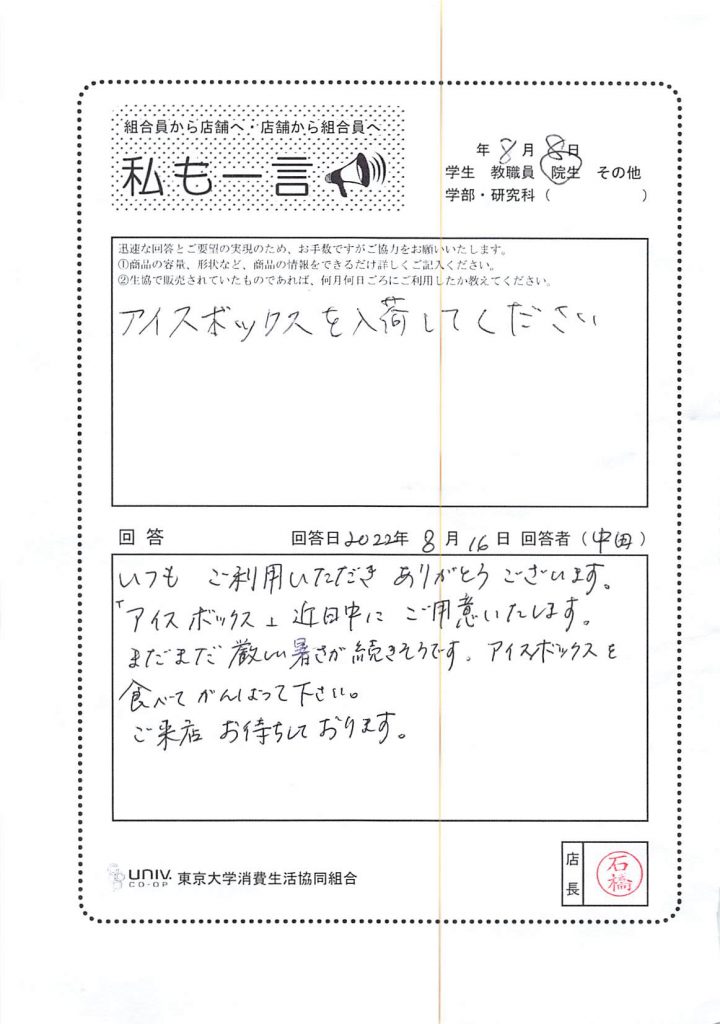 組合員から店舗へ・店舗から組合員へ
私も一言
年 8 月 8 日
学生 教職員 院生 その他
学部・研究科（ ）
迅速な回答とご要望の実現のため、お手数ですがご協力をお願いいたします。
①商品の容量、形状など、商品の情報をできるだけ詳しくご記入ください。
②生協で販売されていたものであれば、何月何日ごろにご利用したか教えてください。
アイスボックスを入荷してください
回答 回答日2022年 8 月 16 日 回答者（中田）
いつも ご利用いただき ありがとうございます。
「アイスボックス」近日中に ご用意いたします。
まだまだ 厳しい暑さが続きそうです。アイスボックスを
食べて がんばって下さい。
ご来店 お待ちしております。
UNIV. CO-OP 東京大学消費生活協同組合
店長 石橋